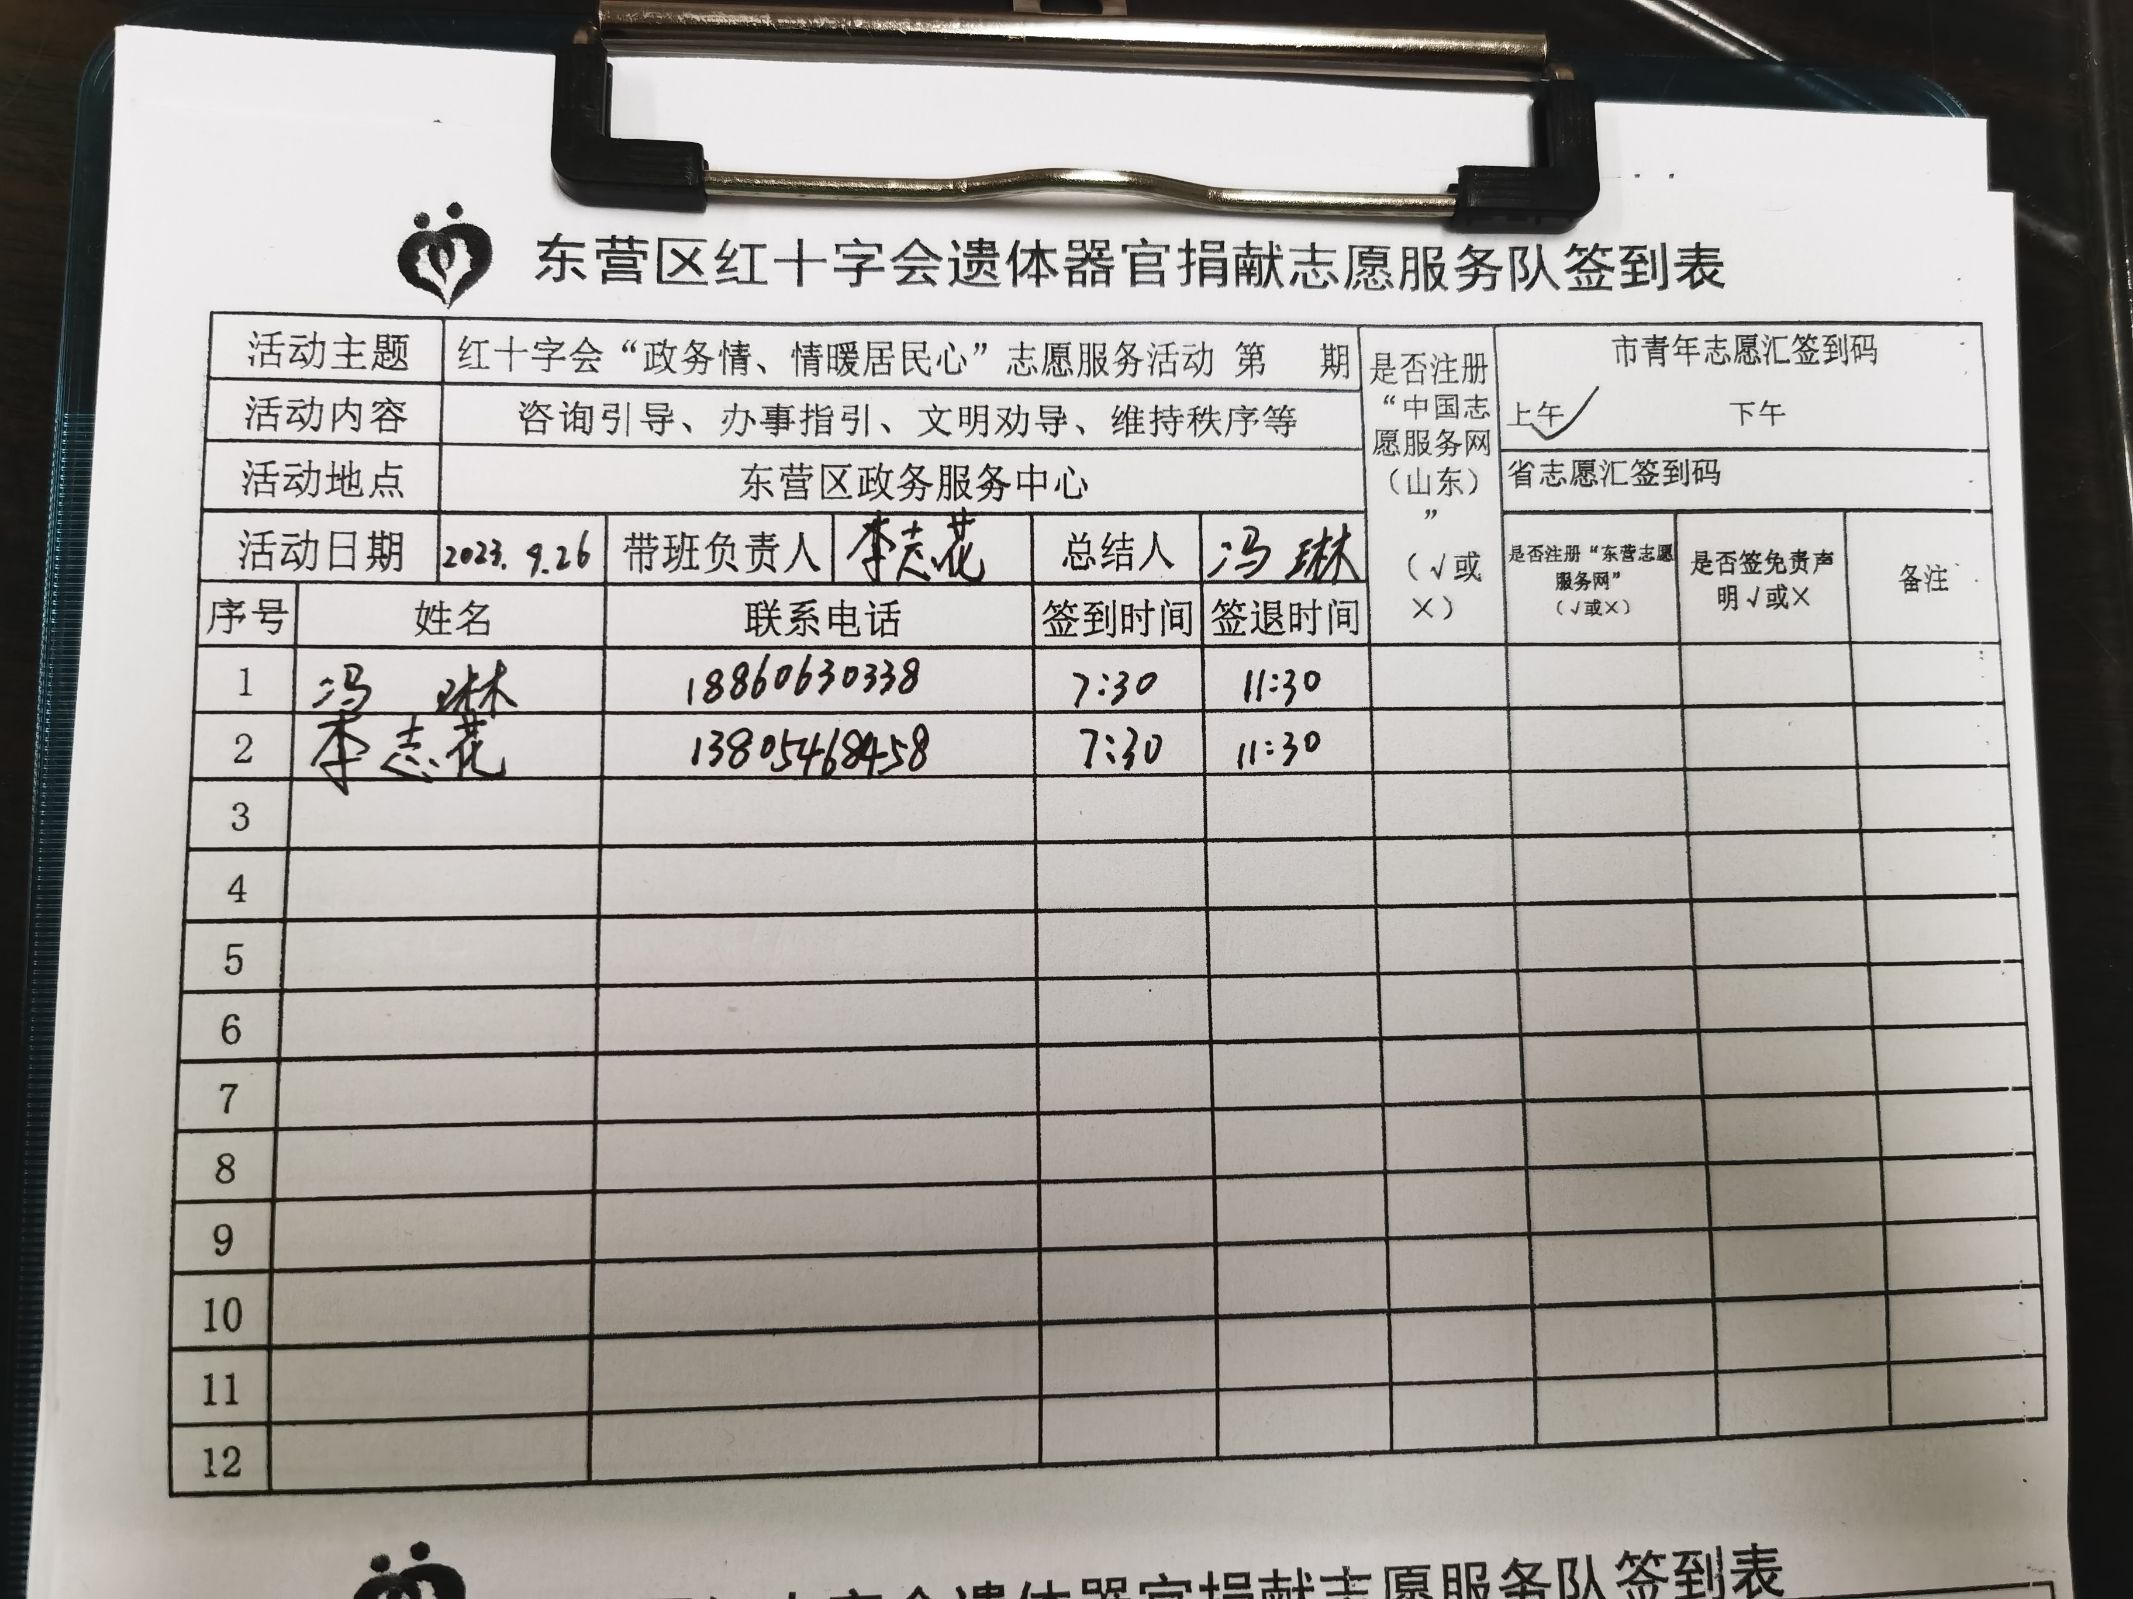 东营区红十字会遗体器官捐献志愿服务队签到表
活动主题 红十字会“政务情、情暖居民心”志愿服务活动 第 期
是否注册“中国志愿服务网（山东）”（√或×）
市青年志愿汇签到码
上午√ 下午
活动内容 咨询引导、办事指引、文明劝导、维持秩序等
活动地点 东营区政务服务中心
省志愿汇签到码
活动日期 2023.9.26 带班负责人 李志花 总结人 冯琳
是否注册“东营志愿服务网”（√或×）
是否签免责声明√或×
备注
序号 姓名 联系电话 签到时间 签退时间
1 冯琳 18860630338 7:30 11:30
2 李志花 13805468458 7:30 11:30
3
4
5
6
7
8
9
10
11
12
会遗体器官捐献志愿服务队签到表